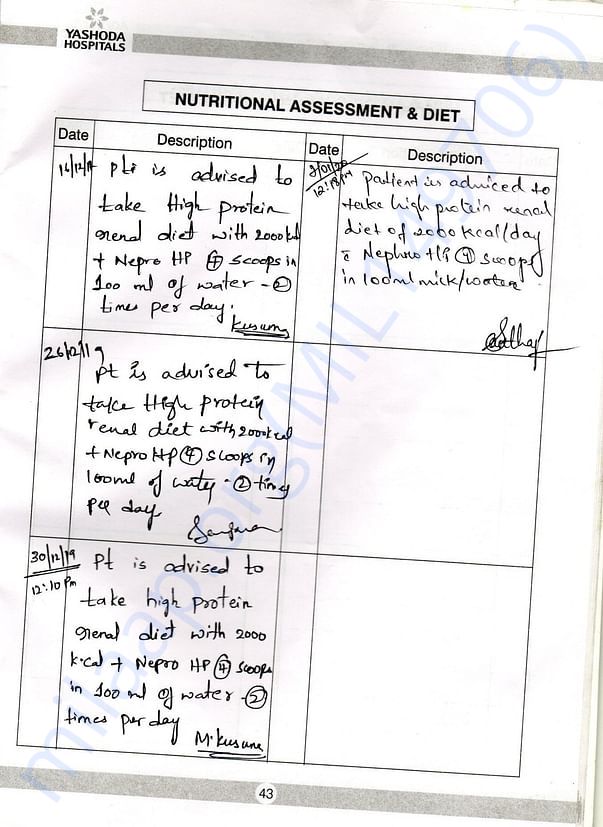 YASHODA
HOSPITALS
NUTRITIONAL ASSESSMENT & DIET
Date
Description
16/12/19
Pt is advised to
take High protein
renal diet with 2000kcal
+ Nepro HP ④ scoops in
100 ml of water - ②
times per day.
Kusuma
26/12/19
Pt is advised to
take High protein
renal diet with 2000kcal
+ Nepro HP ④ scoops in
100ml of water - ② times
per day
30/12/19
12:10 Pm
Pt is advised to
take high protein
renal diet with 2000
k.cal + Nepro HP ④ scoops
in 100 ml of water - ②
times per day
M. Kusuma
Date
Description
12:18 PM
Patient is adviced to
take high protein renal
diet of 2000 kcal/day
c̄ Nephro HP ④ scoops
in 100ml milk/water
43
milaap.org(MIL149706)